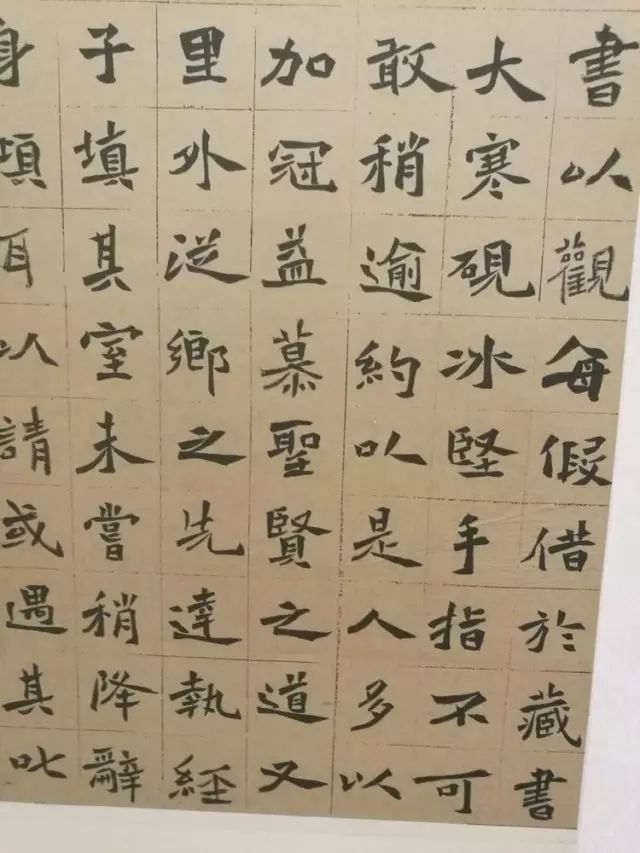 書以觀每假借於藏書
大寒硯冰堅手指不可
敢稍逾約以是人多以
加冠益慕聖賢之道又
里外從鄉之先達執經
子填其室未嘗稍降辭
身傾耳以請或遇其叱